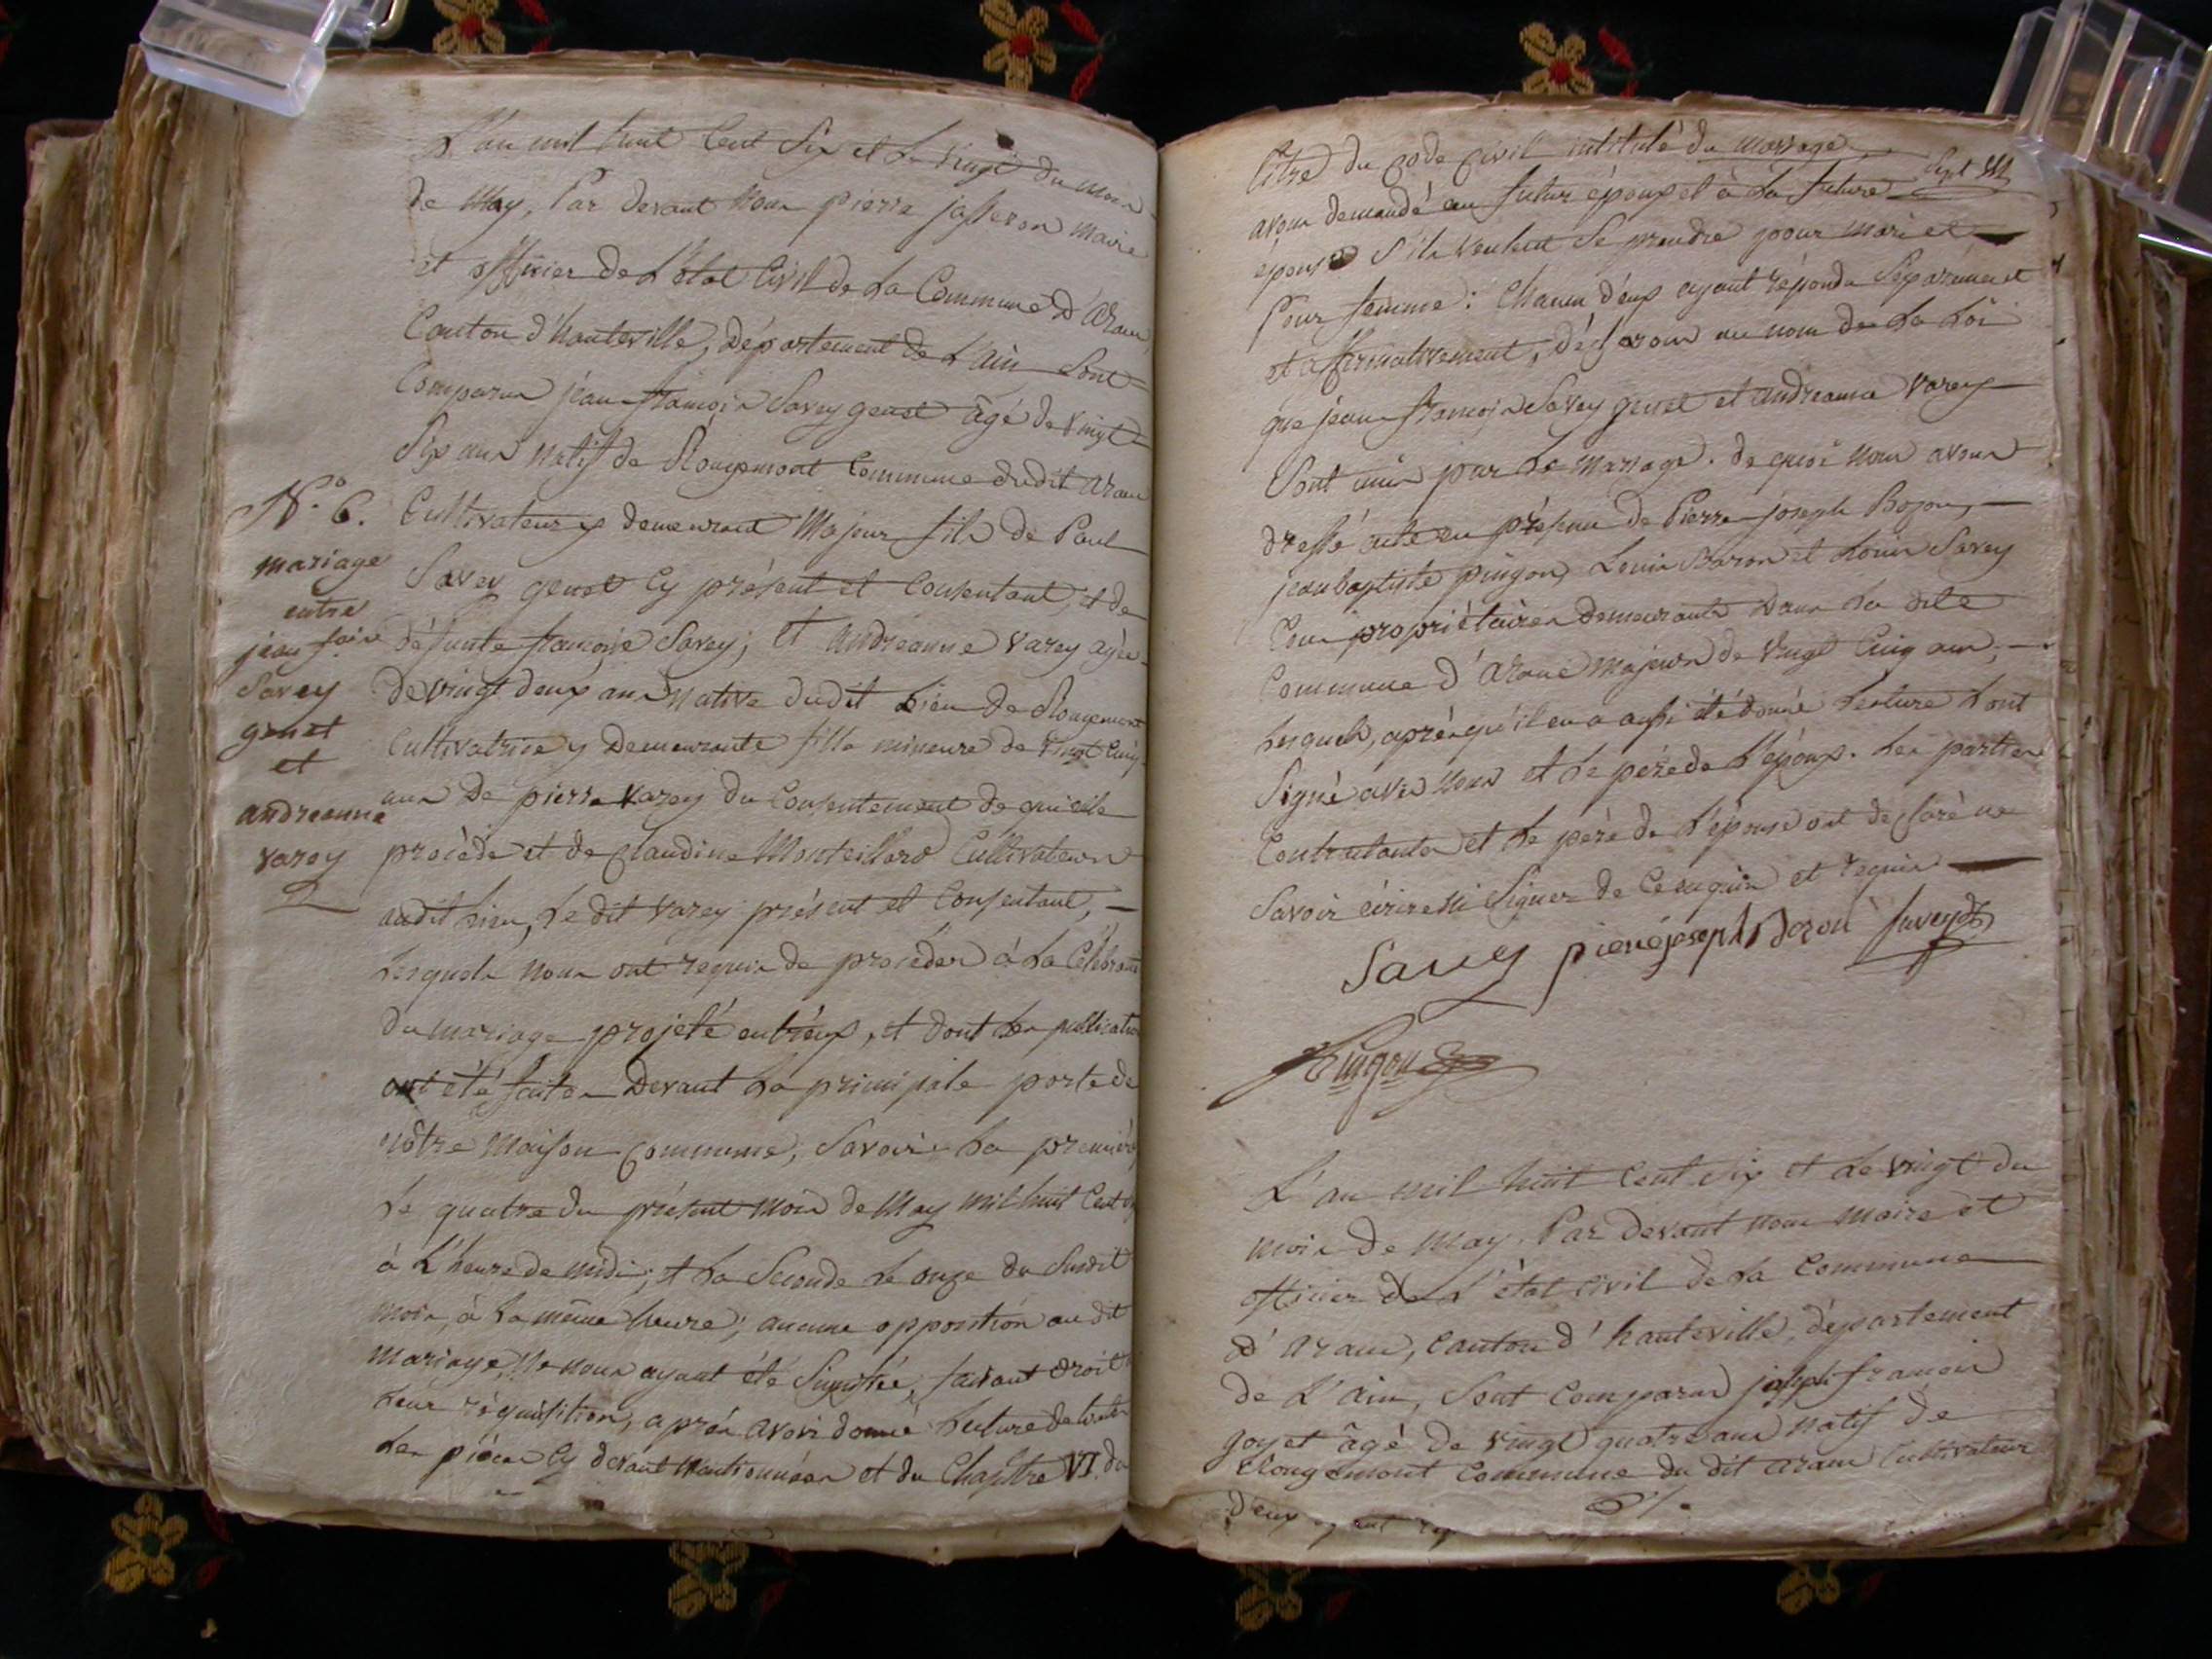 L'an mil huit Cent Six et Le vingt du mois
de May, Par devant Nous pierre josseron maire
et officier de L'état Civil de La Commune d'Aranc
Canton d'hauteville, département de L'ain Sont
Comparus jean françois Savey genet âgé de vingt
Six ans natif de Rougemont Commune dudit aranc
Cultivateur y demeurant Majeur fils de Paul
Savey genet Cy présent et Consentant, et de
défunte françoise Savey; et andréanne varey agée
de vingt deux ans Native dudit Lieu de Rougemont
Cultivatrice y demeurante fille mineure de vingt Cinq
ans de pierre varey du Consentement de qui elle
procède et de Claudine Monteillard Cultivateurs
audit Lieu, Le dit varey présent et Consentant,
Lesquels nous ont requis de procéder à La Célébration
du mariage projeté entr'eux, et dont Les publications
ont été faites Devant La principale porte de
nôtre Maison Commune, Savoir La premiére
Le quatre du présent Mois de May mil huit Cent Six
à L'heure de midi; et La Seconde Le onze du Susdit
mois, à La même heure; aucune opposition audit
mariage, Ne nous ayant été Signifiée, faisant droit à
Leur réquisition, après avoir donné Lecture de toutes
Les pièces Cy devant Mentionnées et du Chapitre VI. du
N.º 6.
mariage
entre
jean fois
Savey
genet
et
andreanne
varey
titre du Code Civil intitulé du mariage
Sept VI
avons demandé au futur époux et à La future
épouse S'ils veulent Se prendre pour mari et
Pour femme: Chacun d'eux ayant répondu Séparément
et affirmativement, déclarons au nom de La Loi
que jean françois Savey genet et andreanne varey
Sont unis par Le Mariage. de quoi nous avons
dressé acte en présence de Pierre joseph Bozon,
jean baptiste pingon, Louis Baron et Louis Savey
tous propriétaires demeurants Dans La dite
Commune d'aranc Majeurs de vingt Cinq ans,
Lesquels, après qu'il en a aussi été donné Lecture Sont
Signé avec Nous et Le père de L'époux. Les parties
Contractantes et Le père de L'épouse ont déclaré ne
Savoir écrire ni Signer de Ce enquis et requis
Savey pierre joseph Bozon Savey
Pingon
L'an mil huit Cent Six et Le vingt du
mois de May. Par devant nous Maire et
officier de L'état Civil de La Commune
d'aranc, Canton d'hauteville, département
de L'ain, Sont Comparus joseph françois
goyet âgé de vingt quatre ans natif de
Rougemont Commune du dit aranc Cultivateur
D'eux ayant